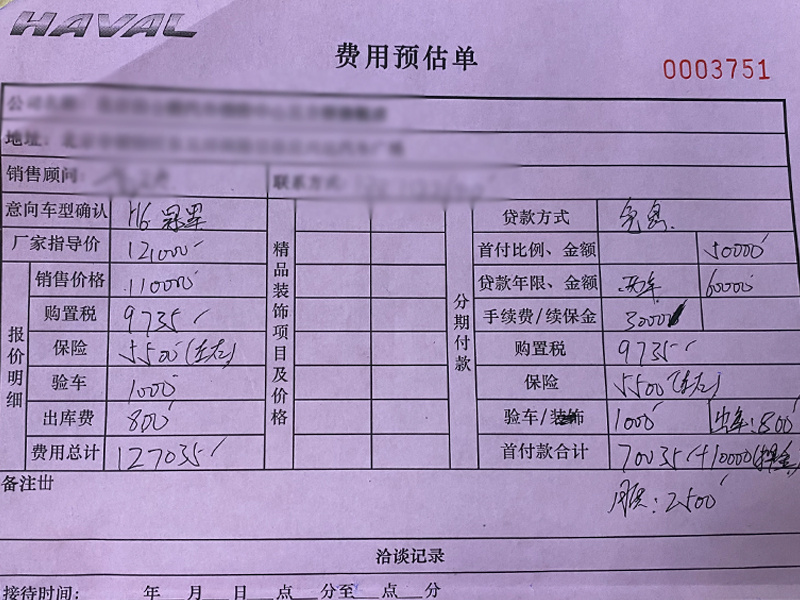 HAVAL
费用预估单
0003751
公司名称:
地址:
销售顾问:
联系方式:
意向车型确认 H6 冠军 贷款方式 免息
厂家指导价 121000 首付比例、金额 50000
销售价格 110000 贷款年限、金额 两年 60000
购置税 9735 手续费/续保金 3000
保险 5500(左右) 购置税 9735
验车 1000 保险 5500(左右)
出库费 800 验车/装饰 1000 出库:800
费用总计 127035 首付款合计 70035+10000(押金)
报价明细
精品装饰项目及价格
分期付款
备注
月供:2500
洽谈记录
接待时间: 年 月 日 点 分至 点 分